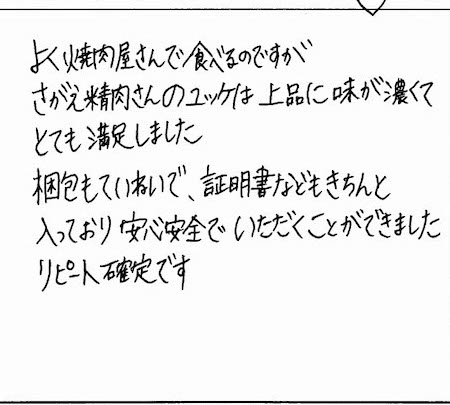 よく焼肉屋さんで食べるのですが
さがえ精肉さんのユッケは上品に味が濃くて
とても満足しました
梱包もていねいで、証明書などもきちんと
入っており安心安全でいただくことができました
リピート確定です